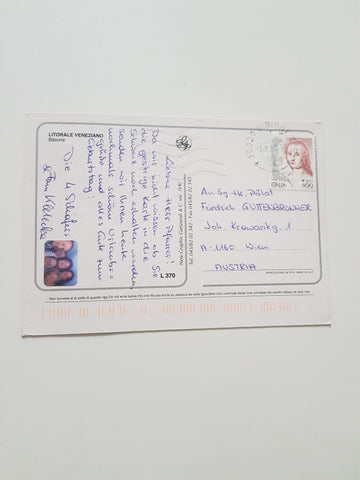 LITORALE VENEZIANO
Bibione
Lieber Herr Pfarrer!
Da wir nicht wissen ob Sie
die gestrige Karte in die
Schweiz noch erhalten werden,
senden wir Ihnen heute
nochmals schöne Urlaubs=
grüße und alles Gute zum
Geburtstag!
Die 4
& Frau
ITALIA
800
An Sg. Hr. Prälat
Friedrich GUTTENBRUNNER
Joh. Krawarikg. 1
A-1160 Wien
AUSTRIA
L 370
RIPRODUZIONE VIETATA
MADE IN ITALY
Non scrivere al di sotto di questa riga
Do not write below this line
Ne pas écrire au dessous de cette ligne
Bitte nicht unterhalb dieser Linie schreiben